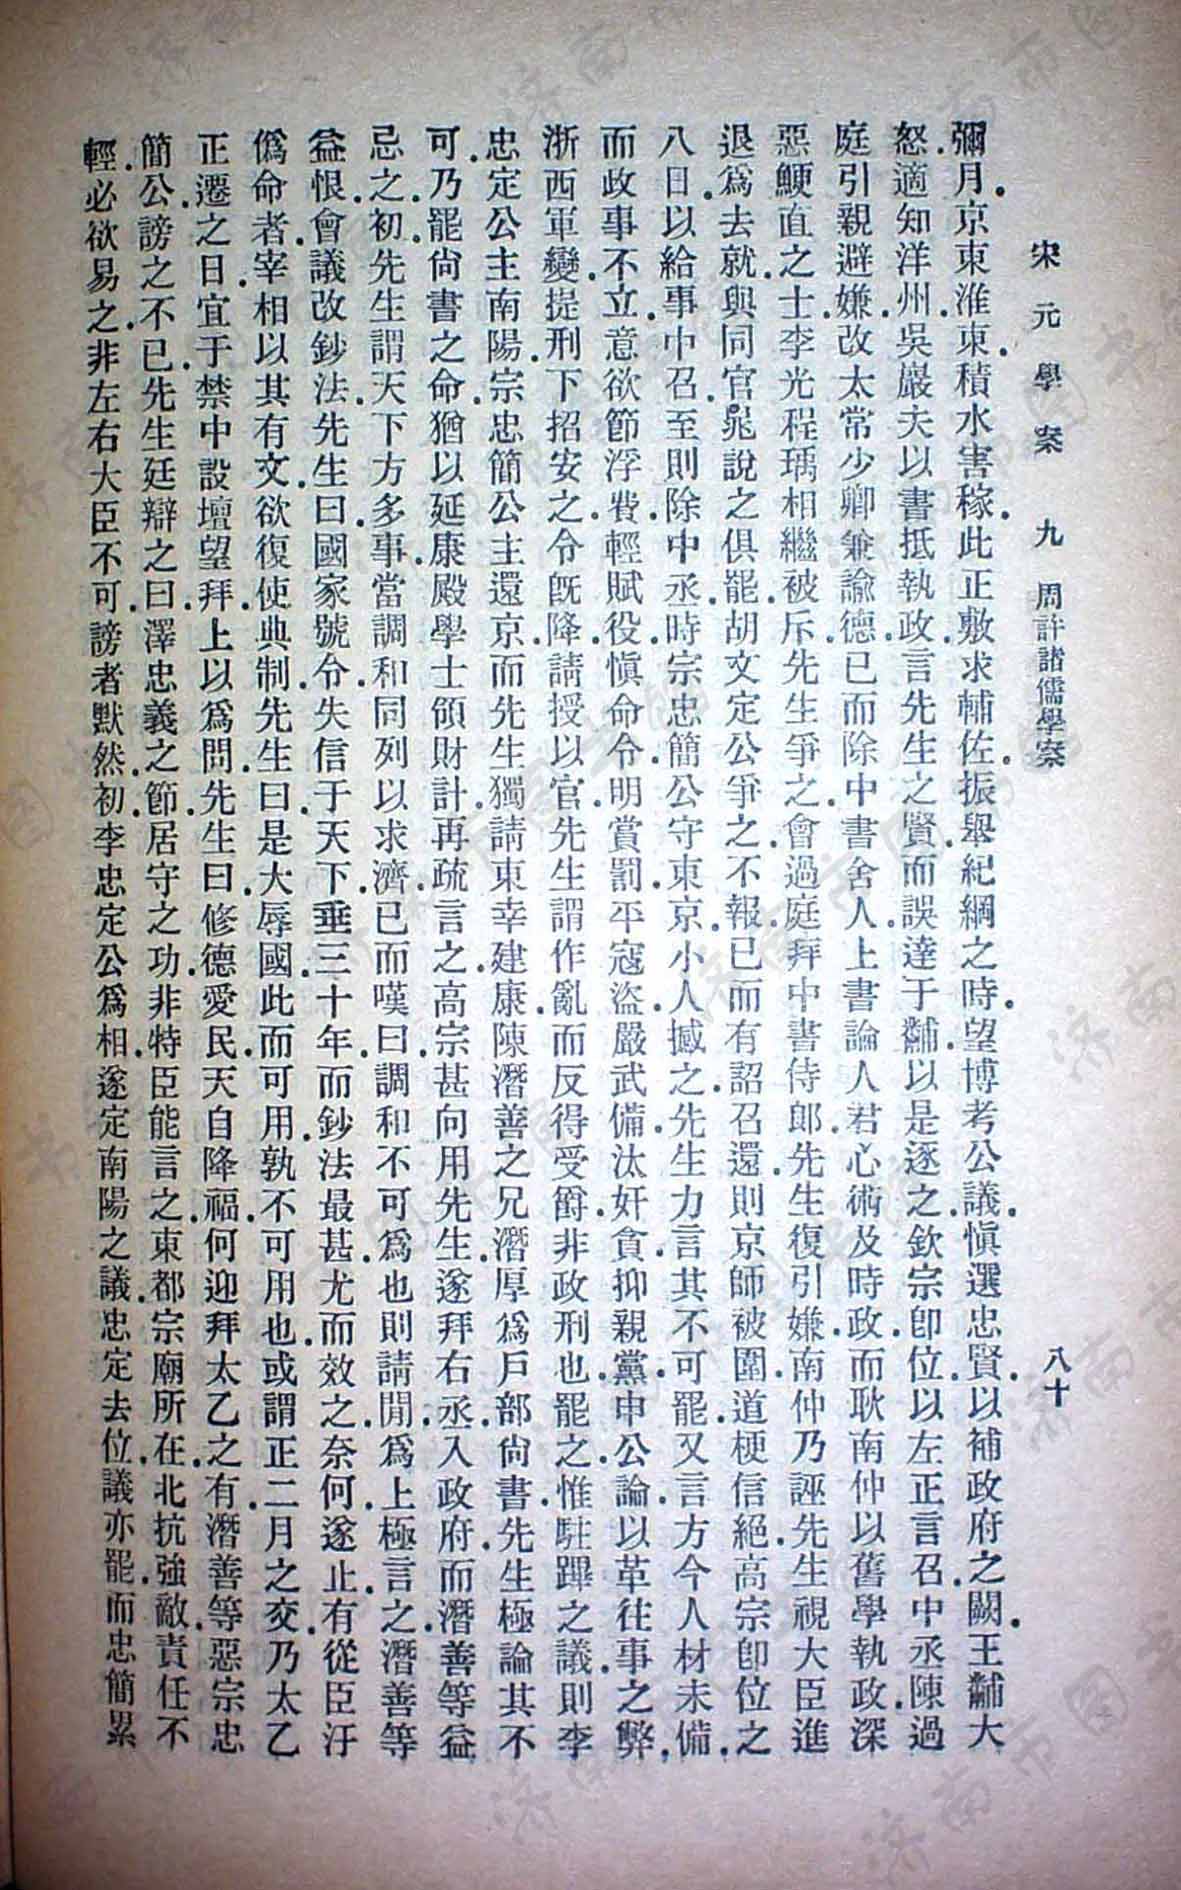 宋元學案 九 周許諸儒學案 八十
彌月京東淮東積水害稼此正敷求輔佐振舉紀綱之時望博考公議慎選忠賢以補政府之闕王黼大
怒適知洋州吳巖夫以書抵執政言先生之賢而誤達于黼以是逐之欽宗卽位以左正言召中丞陳過
庭引親避嫌改太常少卿兼諭德已而除中書舍人上書論人君心術及時政而耿南仲以舊學執政深
惡鯁直之士李光程瑀相繼被斥先生爭之會過庭拜中書侍郎先生復引嫌南仲乃誣先生視大臣進
退爲去就與同官晁說之俱罷胡文定公爭之不報已而有詔召還則京師被圍道梗信絕高宗卽位之
八日以給事中召至則除中丞時宗忠簡公守東京小人撼之先生力言其不可罷又言方今人材未備
而政事不立意欲節浮費輕賦役慎命令明賞罰平寇盜嚴武備汰奸貪抑親黨申公論以革往事之弊
浙西軍變提刑下招安之令旣降請授以官先生謂作亂而反得受爵非政刑也罷之惟駐蹕之議則李
忠定公主南陽宗忠簡公主還京而先生獨請東幸建康陳潛善之兄潛厚爲戶部尙書先生極論其不
可乃罷尙書之命猶以延康殿學士領財計再疏言之高宗甚向用先生遂拜右丞入政府而潛善等益
忌之初先生謂天下方多事當調和同列以求濟已而嘆曰調和不可爲也則請閒爲上極言之潛善等
益恨會議改鈔法先生曰國家號令失信于天下垂三十年而鈔法最甚尤而效之奈何遂止有從臣汙
僞命者宰相以其有文欲復使典制先生曰是大辱國此而可用孰不可用也或謂正二月之交乃太乙
正遷之日宜于禁中設壇望拜上以爲問先生曰修德愛民天自降福何迎拜太乙之有潛善等惡宗忠
簡公謗之不已先生廷辯之曰澤忠義之節居守之功非特臣能言之東都宗廟所在北抗強敵責任不
輕必欲易之非左右大臣不可謗者默然初李忠定公爲相遂定南陽之議忠定去位議亦罷而忠簡累